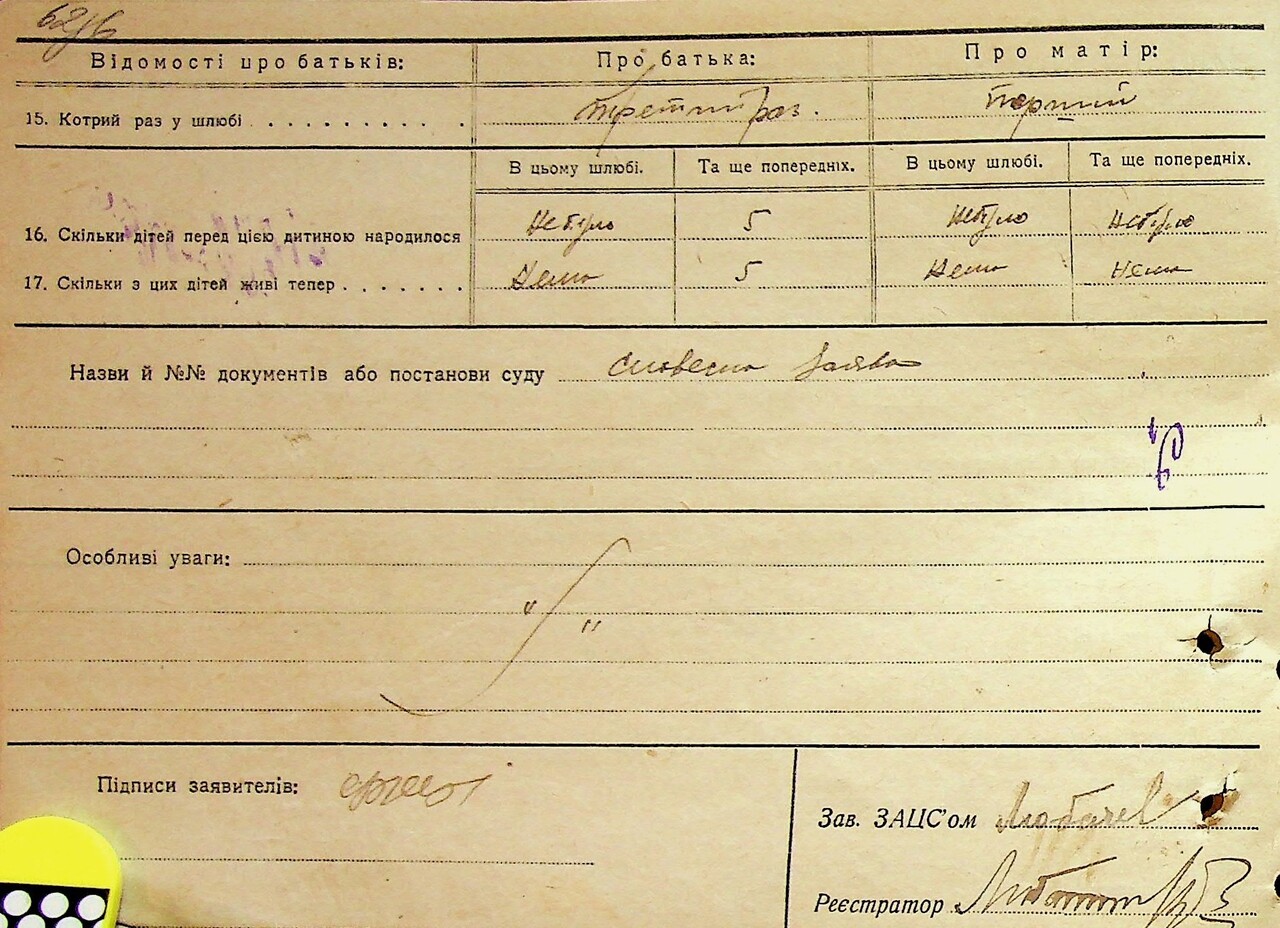 Відомості про батьків: Про батька: Про матір:
15. Котрий раз у шлюбі . . . . . . . . . . третий раз. перший
В цьому шлюбі. Та ще попередніх. В цьому шлюбі. Та ще попередніх.
16. Скільки дітей перед цією дитиною народилося не було 5 не було не було
17. Скільки з цих дітей живі тепер . . . . . . . нема 5 нема нема
Назви й №№ документів або постанови суду словесна заява
Особливі уваги:
" "
Підписи заявителів:
Зав. ЗАЦС'ом
Реєстратор